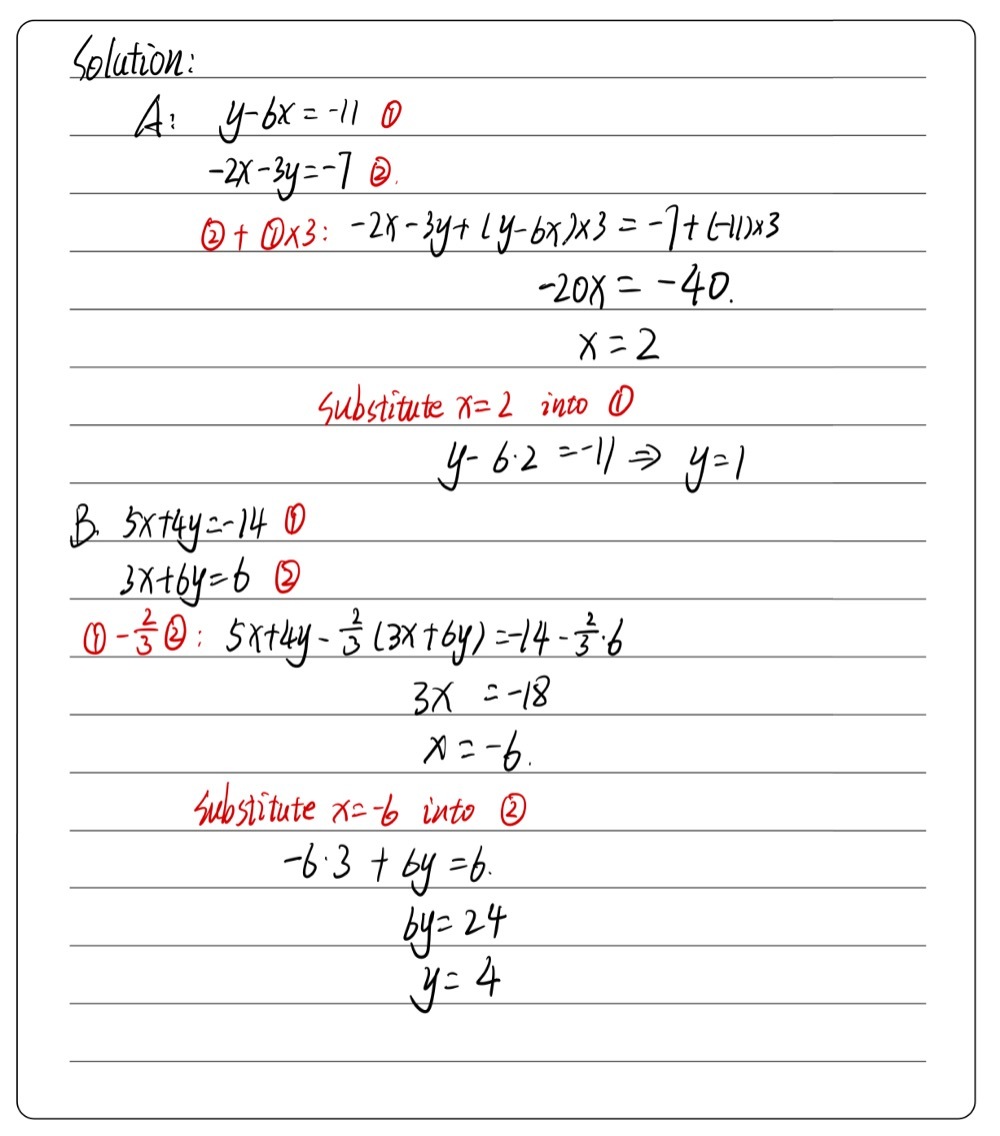 Solution:
A: y-6x=-11 ①
-2x-3y=-7 ②.
②+①×3: -2x-3y+(y-6x)×3=-7+(-11)×3
-20x=-40.
x=2
Substitute x=2 into ①
y-6·2=-11⇒y=1
B. 5x+4y=-14 ①
3x+6y=6 ②
①-2/3②: 5x+4y-2/3(3x+6y)=-14-2/3·6
3x =-18
x=-6.
Substitute x=-6 into ②
-6·3+6y=6.
6y=24
y=4